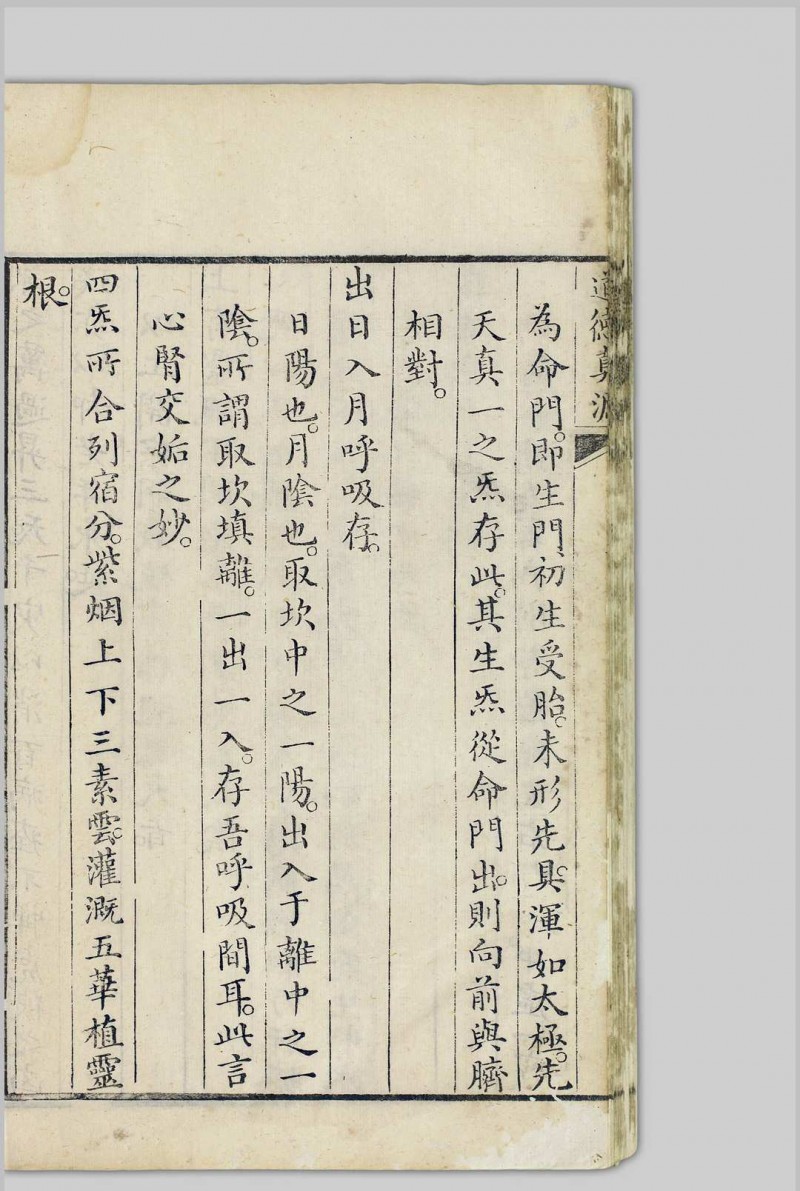 道德真源
為命門。即生門、初生受胎。未形先具。渾如太極。先
天真一之炁存此。其生炁從命門出。則向前與臍
相對。
出日入月呼吸存。
日陽也。月陰也。取坎中之一陽。出入于離中之一
陰。所謂取坎填離。一出一入。存吾呼吸間耳。此言
心腎交姤之妙。
四炁所合列宿分。紫烟上下三素雲。灌溉五華植靈
根。